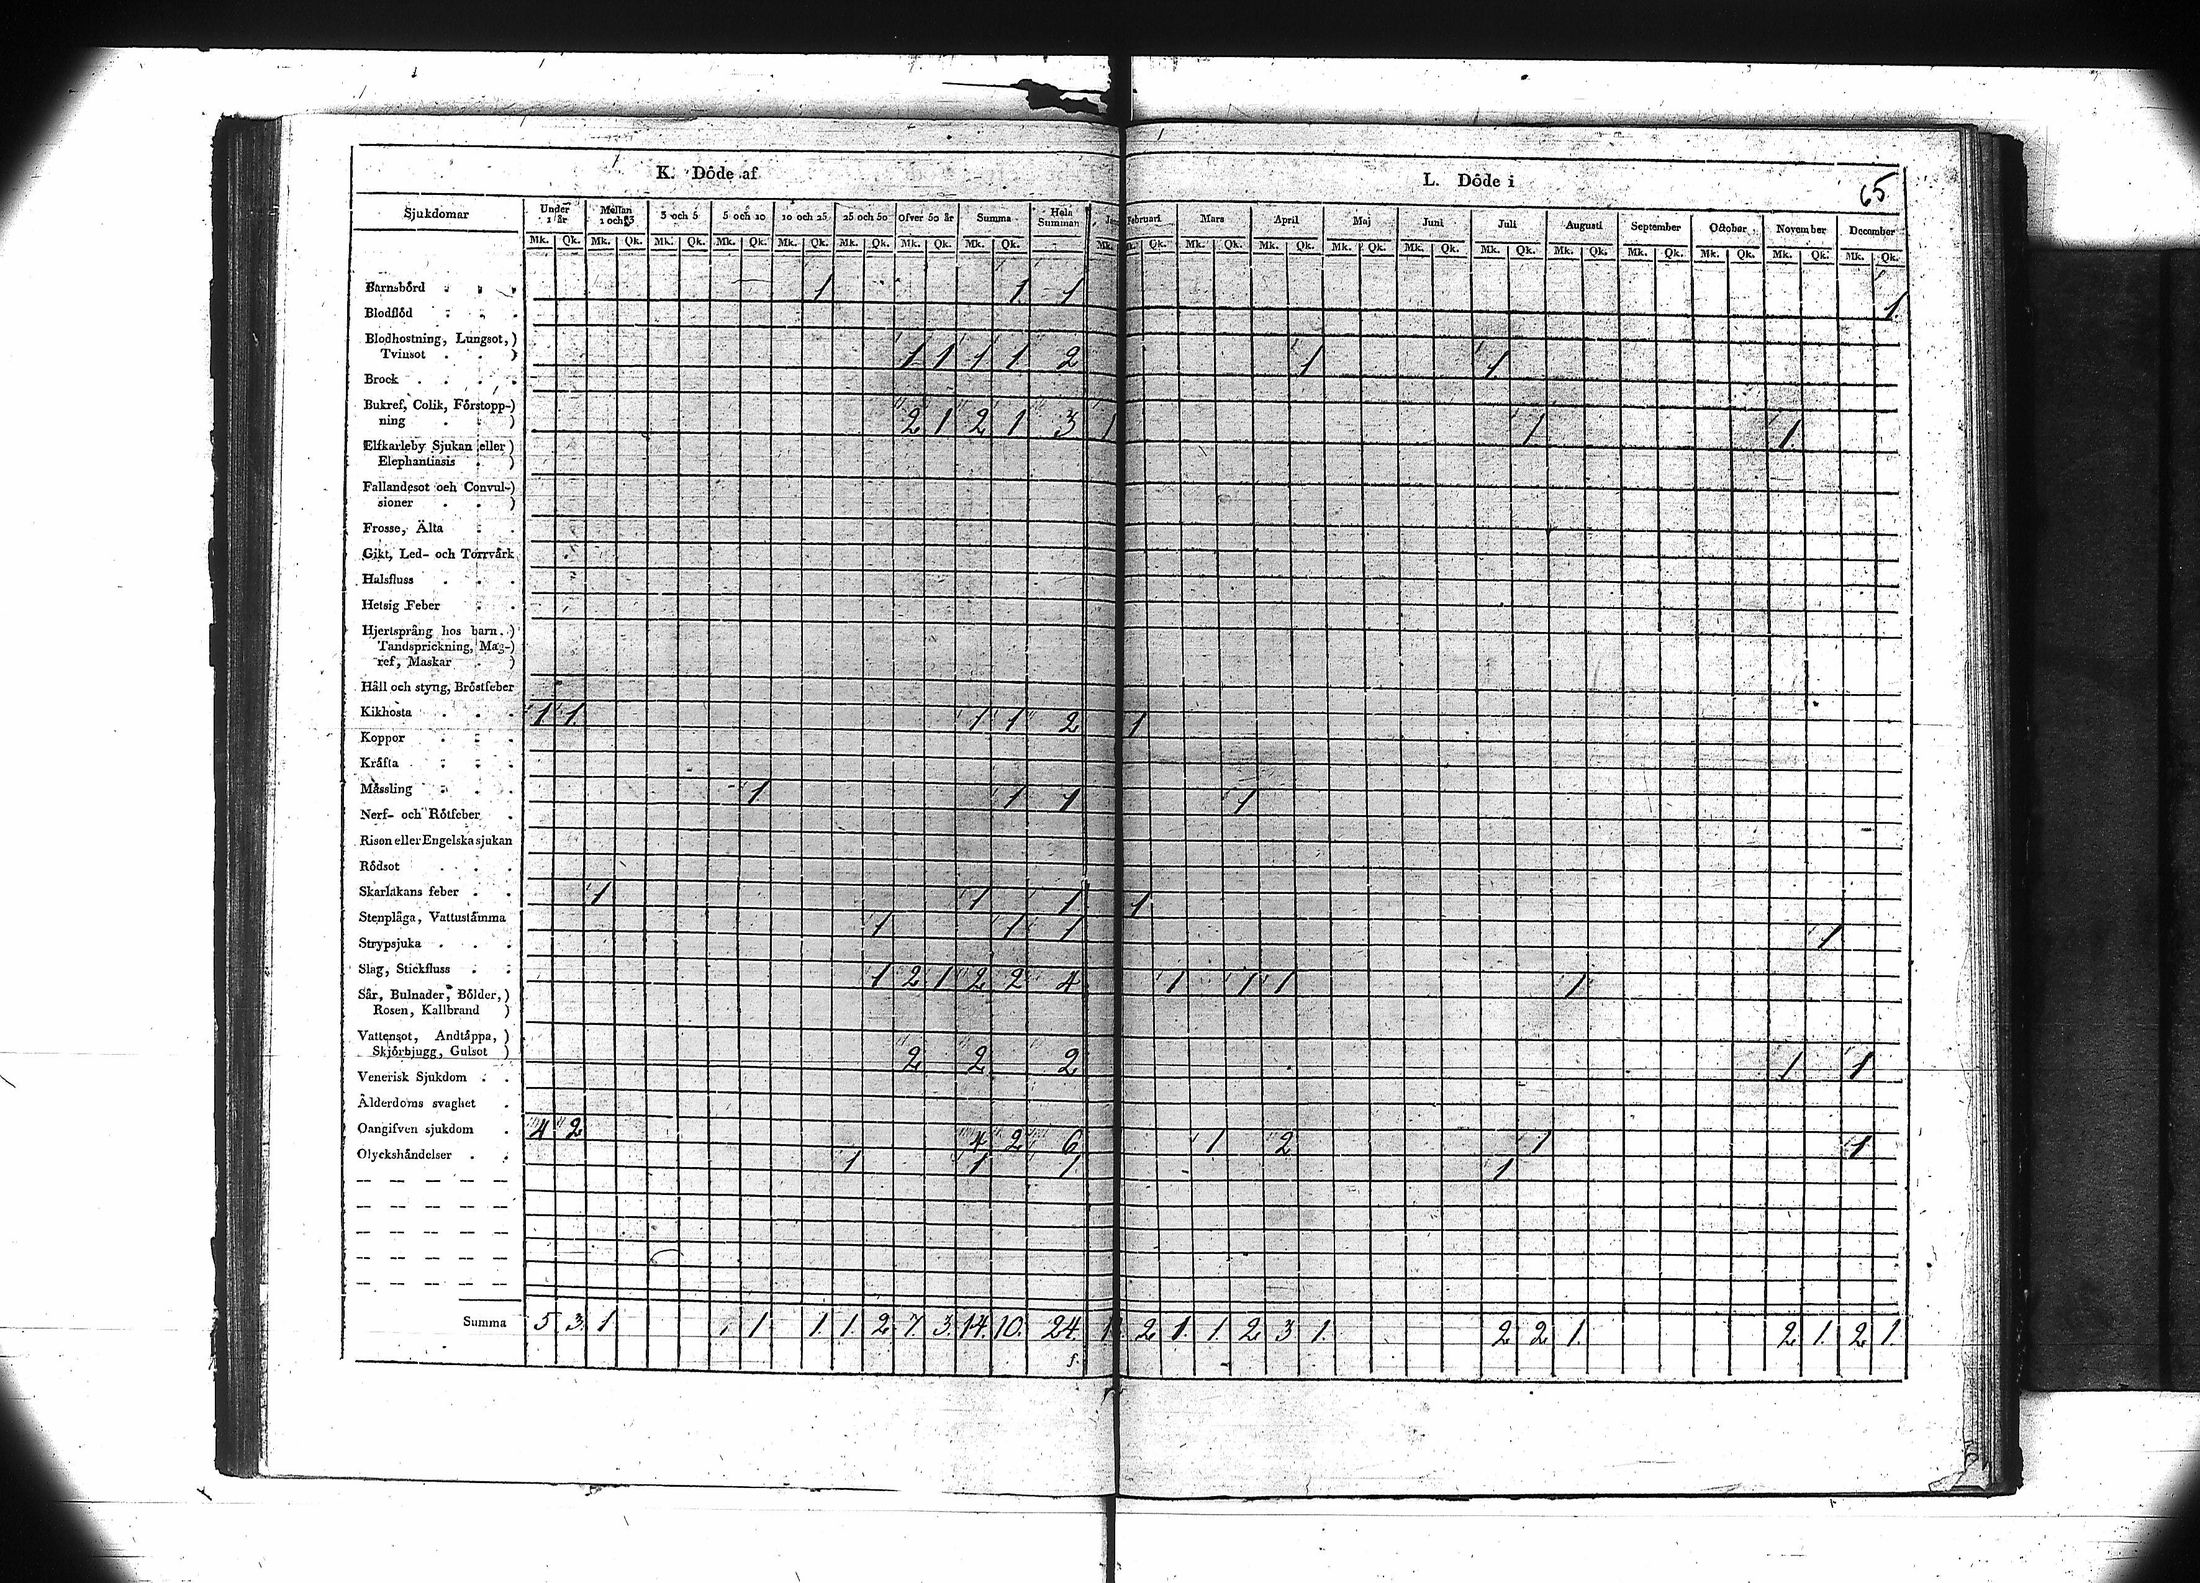 K. Döde af L. Döde i 65
Sjukdomar Under 1 år Mellan 1 och 3 3 och 5 5 och 10 10 och 25 25 och 50 Ofver 50 år Summa Hela Summan Februari Mars April Maj Juni Juli Augusti September October November December
Mk. Qk. Mk. Qk. Mk. Qk. Mk. Qk. Mk. Qk. Mk. Qk. Mk. Qk. Mk. Qk. Mk. Mk. Qk. Mk. Qk. Mk. Qk. Mk. Qk. Mk. Qk. Mk. Qk. Mk. Qk. Mk. Qk. Mk. Qk. Mk. Qk. Mk. Qk.
Barnsbörd 1 1 1 1
Blodflöd
Blodhostning, Lungsot,)
Tvinsot ) 1 1 1 1 2 1 1
Brock
Bukref, Colik, Förstopp-)
ning ) 2 1 2 1 3 1 1 1
Elfkarleby Sjukan eller)
Elephantiasis )
Fallandesot och Convul-)
sioner )
Frosse, Älta
Gikt, Led- och Torrvärk
Halsfluss
Hetsig Feber
Hjertsprång hos barn,)
Tandsprickning, Mag-)
ref, Maskar )
Håll och styng, Bröstfeber
Kikhosta 1 1 1 1 2 1
Koppor
Kräfta
Mässling 1 1 1 1
Nerf- och Rötfeber
Risen eller Engelska sjukan
Rödsot
Skarlakans feber 1 1 1 1
Stenplåga, Vattustämma 1 1 1 1
Strypsjuka
Slag, Stickfluss 1 2 1 2 2 4 1 1 1 1
Sår, Bulnader, Bölder,)
Rosen, Kallbrand )
Vattensot, Andtäppa, )
Skjörbjugg, Gulsot ) 2 2 2 1 1
Venerisk Sjukdom
Ålderdoms svaghet
Oangifven sjukdom 4 2 4 2 6 1 2 1 1
Olyckshändelser 1 1 1 1
Summa 5 3 1 1 1 1 2 7. 3. 14. 10. 24. 2 1. 1. 2 3 1. 2 2 1. 2 1. 2 1.